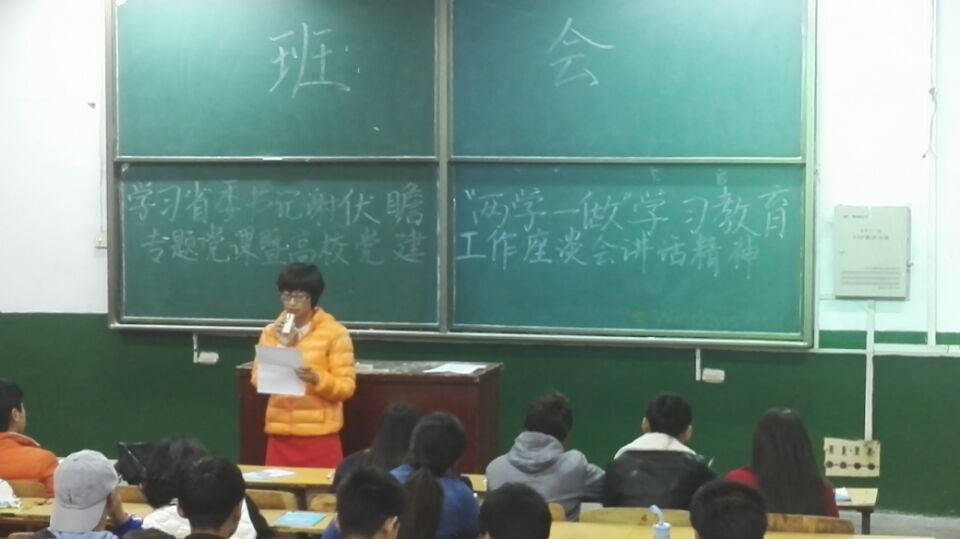 班 会
学习省委书记谢伏瞻"两学一做"学习教育
专题党课暨高校党建工作座谈会讲话精神